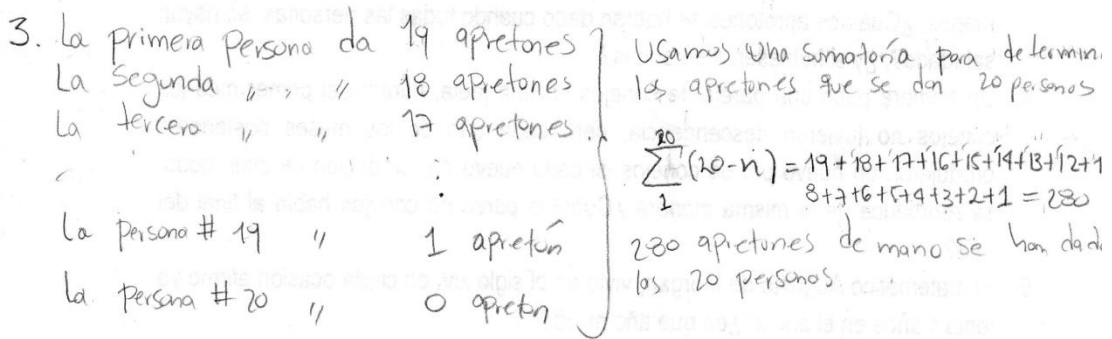 3. La primera persona da 19 apretones
La segunda " , " 18 apretones
La tercera " " 17 apretones
La persona # 19 " 1 apretón
La persona # 20 " 0 apreton
Usamos una sumatoría para determin
los apretones que se dan 20 personas
20
∑ (20-n) = 19+18+17+16+15+14+13+12+1
1 8+7+6+5+4+3+2+1 = 280
280 apretones de mano se han dad
las 20 personas.